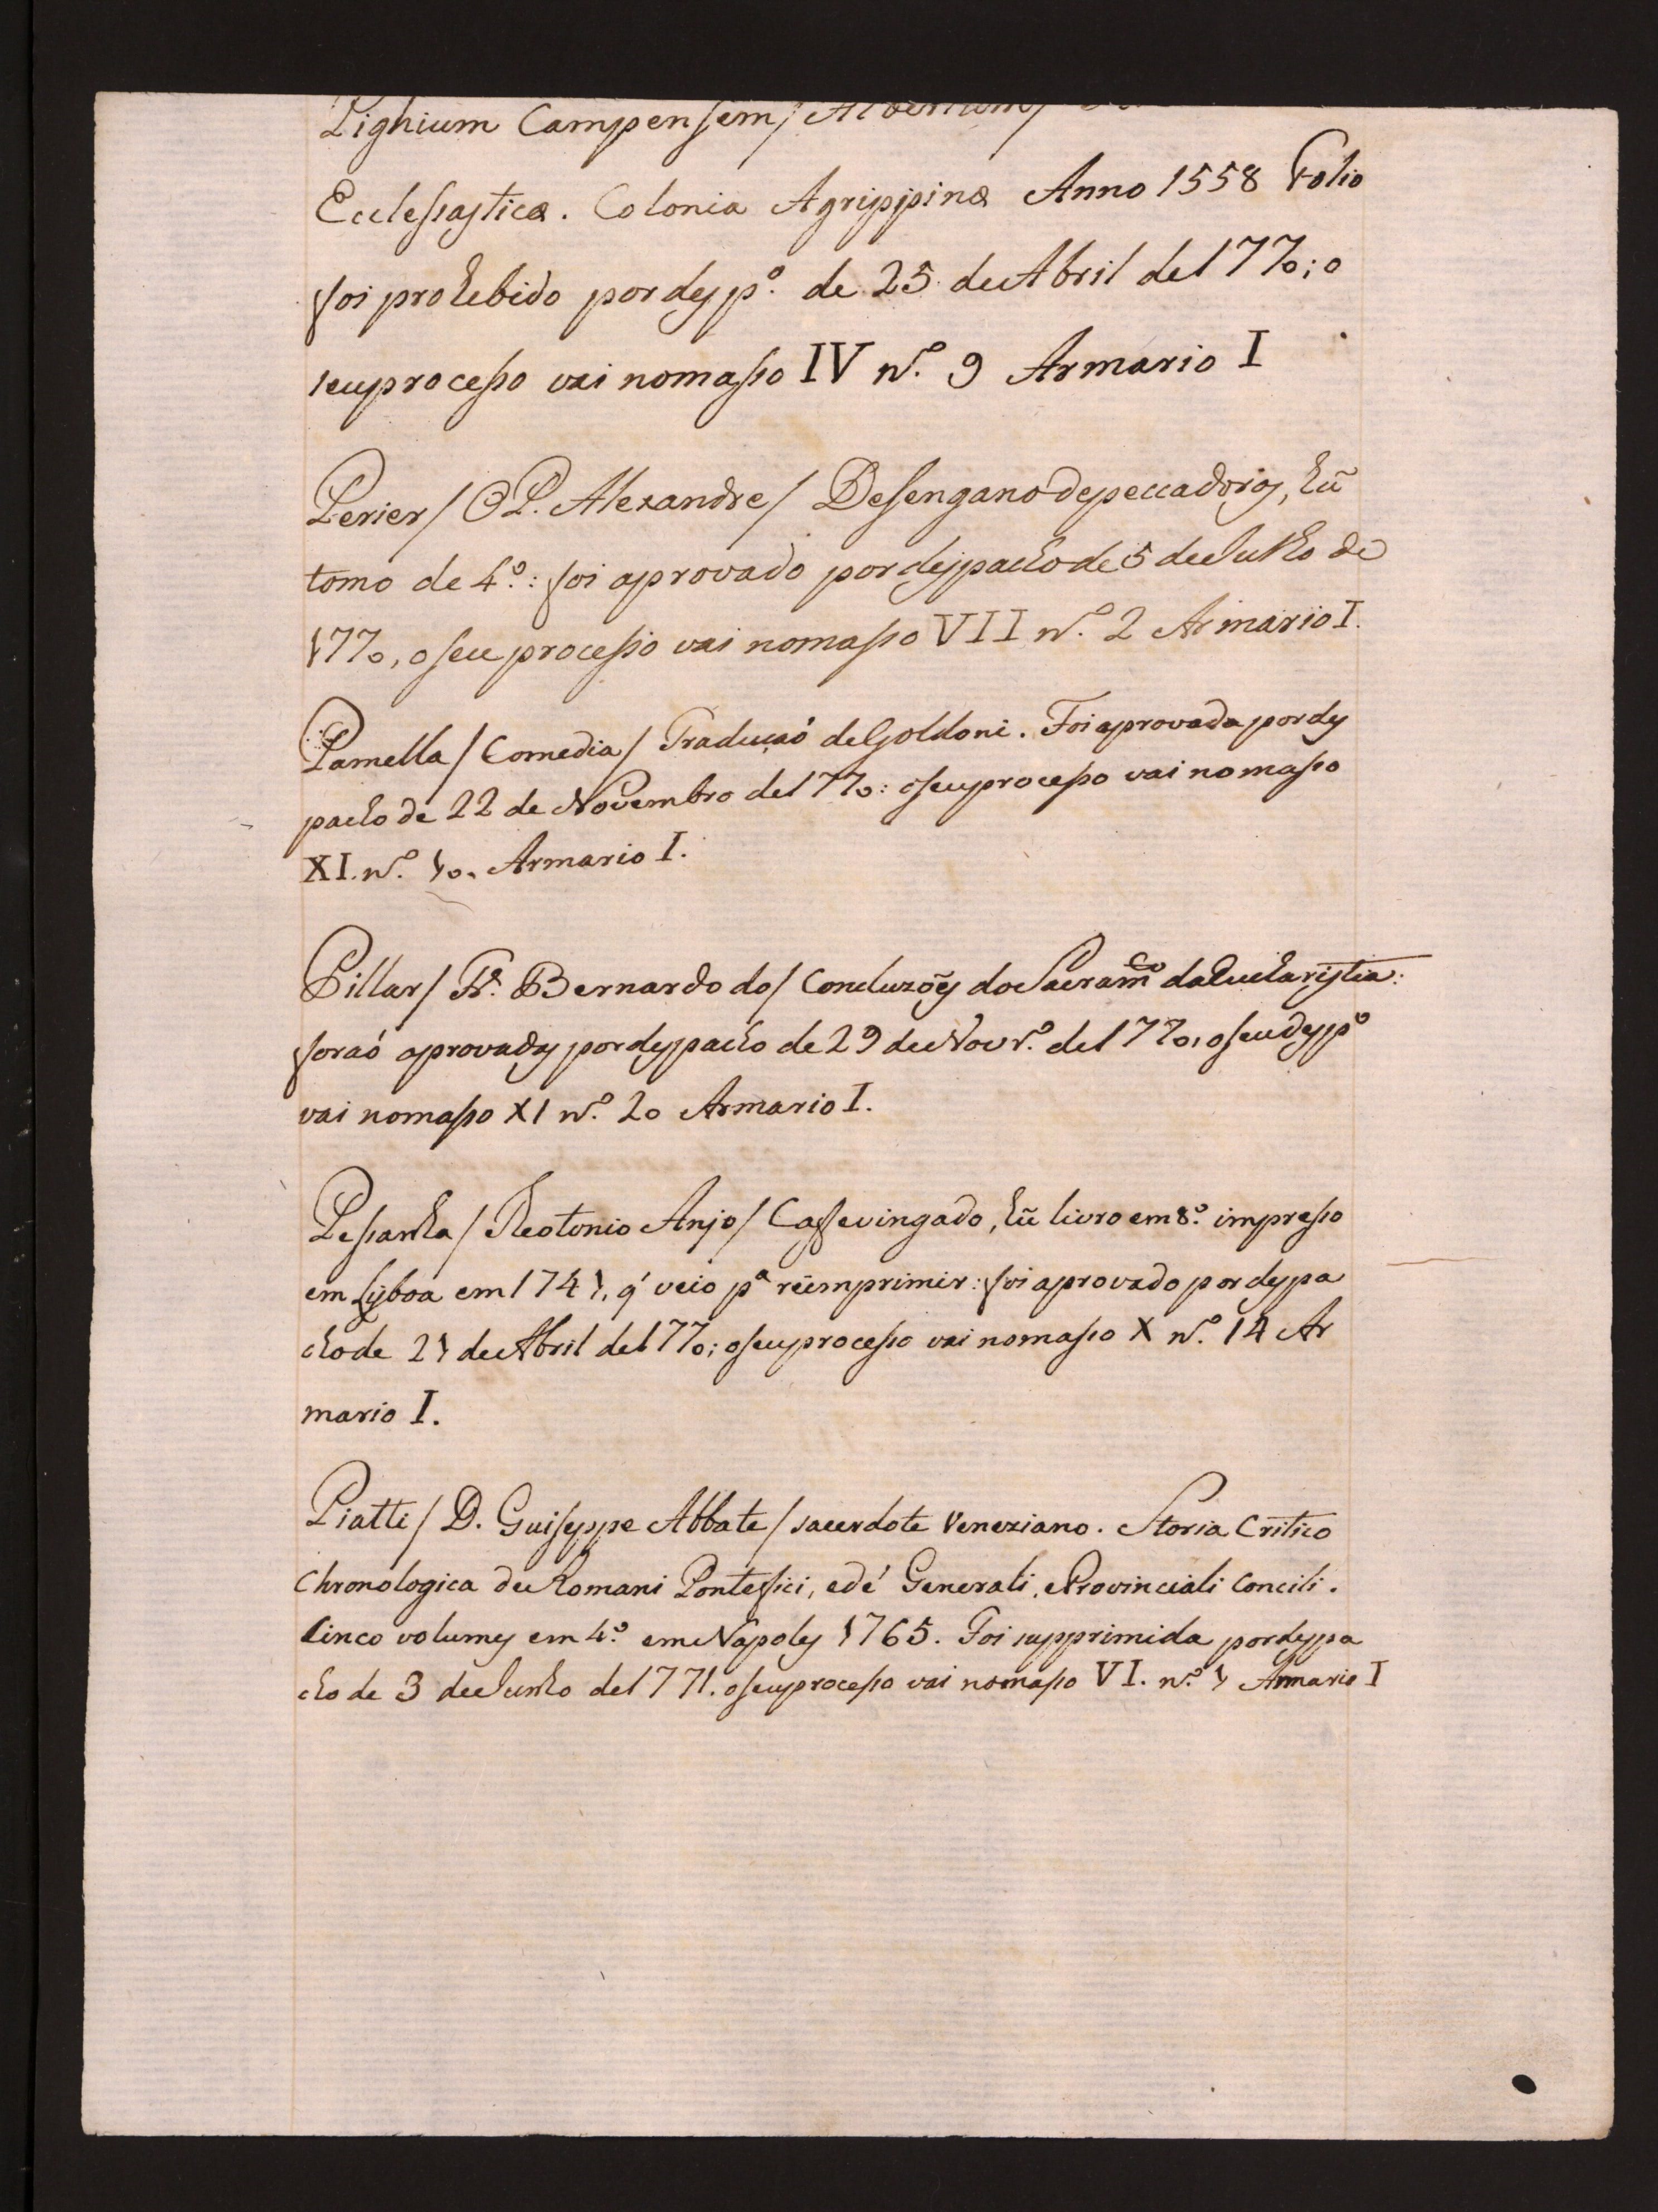 Pighium Campensem / Albertum /
Ecclesiasticæ. Colonia Agrippinæ Anno 1558 Folio
foi prohebido por desp.º de 25 de Abril de 1770; o
seu processo vai no masso IV N.º 9 Armario I
Perier / O P. Alexandre / Desengano de peccadores, hũ
tomo de 4.º: foi aprovado por despacho de 5 de Julho de
1770, o seu processo vai no masso VII N.º 2 Armario I.
Pamella / Comedia / Traduçaó de Goldoni. Foi aprovada por des
pacho de 22 de Novembro de 1770: o seu processo vai no masso
XI. N.º 10. Armario I.
Pillar / Fr. Bernardo do / Concluzões do Sacram.to da Eucharistia:
foraó aprovadas por despacho de 29 de Nov.º de 1770, o seu desp.º
vai no masso XI N.º 20 Armario I.
Pessanha / Theotonio Anjo / Caffe vingado, hũ livro em 8.º impresso
em Lisboa em 1741, q́ veio p.ª reimprimir: foi aprovado por despa
cho de 21 de Abril de 1770; o seu processo vai no masso X N.º 14 Ar
mario I.
Piatti / D. Guiseppe Abbate / sacerdote Veneziano. Storia Critico
Chronologica de Romani Pontefici, e dé Generali, e Provinciali Concili.
Cinco volumes em 4.º em Napoles 1765. Foi supprimida por despa
cho de 3 de Junho de 1771. o seu processo vai no masso VI. N.º 1 Armario I